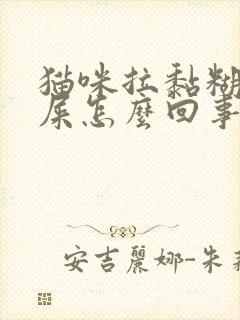 猫咪拉黏糊
屎怎麼回事
安吉麗娜-朱